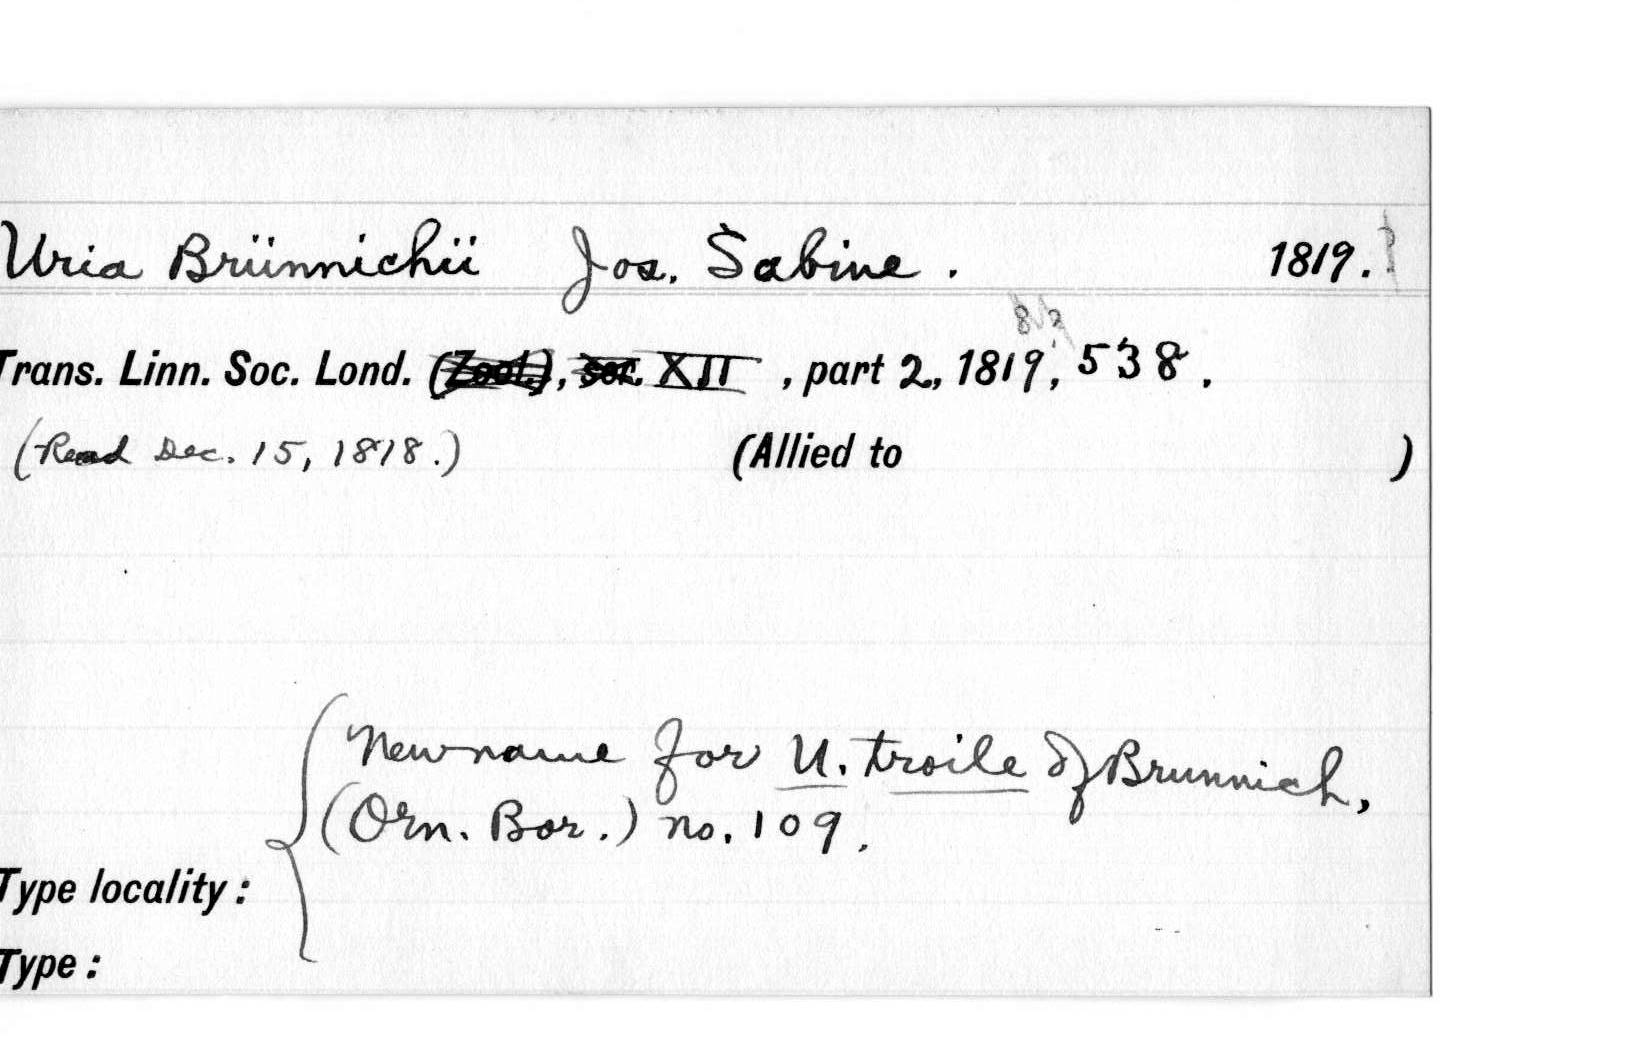 Uria Brünnichii Jos. Sabine. 1819.?
Trans. Linn. Soc. Lond. (Zool.), ser. XII, part 2, 1819, 538.
(Read Dec. 15, 1818.) (Allied to )
New name for U. troile of Brunnich,
(Orn. Bor.) no. 109.
Type locality:
Type: